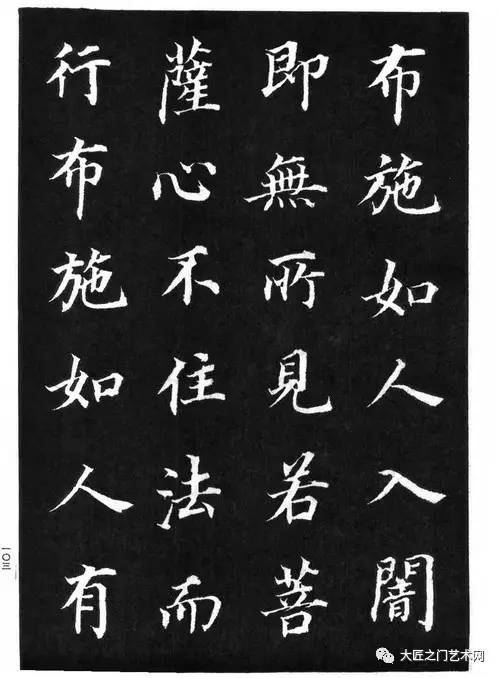 布施如人入闇
即無所見若菩
薩心不住法而
行布施如人有
一〇三
大匠之门艺术网